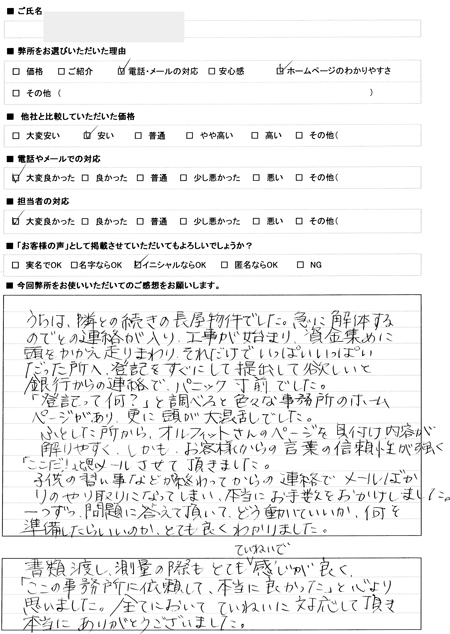 ■ ご氏名
■ 弊所をお選びいただいた理由
□ 価格 □ご紹介 ☑電話・メールの対応 □安心感 ☑ホームページのわかりやすさ
□ その他 ( )
■ 他社と比較していただいた価格
□ 大変安い ☑ 安い □ 普通 □ やや高い □ 高い □ その他(
■ 電話やメールでの対応
☑ 大変良かった □ 良かった □ 普通 □ 少し悪かった □ 悪い □ その他(
■ 担当者の対応
☑ 大変良かった □ 良かった □ 普通 □ 少し悪かった □ 悪い □ その他(
■「お客様の声」として掲載させていただいてもよろしいでしょうか?
□ 実名でOK □名字ならOK ☑イニシャルならOK □ 匿名ならOK □ NG
■ 今回弊所をお使いいただいてのご感想をお願いします。
うちは、隣との続きの長屋物件でした。急に解体する
のでとの連絡が入り、工事が始まり、資金集めに
頭をかかえ走りまわり、それだけでいっぱいいっぱい
だった所へ、登記をすぐにして提出して欲しいと
銀行からの連絡で、パニック寸前でした。
「登記って何?」と調べると色々な事務所のホーム
ページがあり、更に頭が大混乱でした。
ふとした所から、オルフィットさんのページを見付け内容が
解りやすく、しかも、お客様からの言葉の信頼性が強く
「ここだ!」と思いメールさせて頂きました。
子供の習い事などが終わってからの連絡でメールばか
りのやり取りになってしまい、本当にお手数をおかけしました。
一つずつ、問題に答えて頂いて、どう動いていいか、何を
準備したらいいのか、とても良くわかりました。
書類渡し、測量の際もとてもていねいで感じが良く、
「ここの事務所に依頼して、本当に良かった」と心より
思いました。全てにおいてていねいに対応して頂き
本当にありがとうございました。